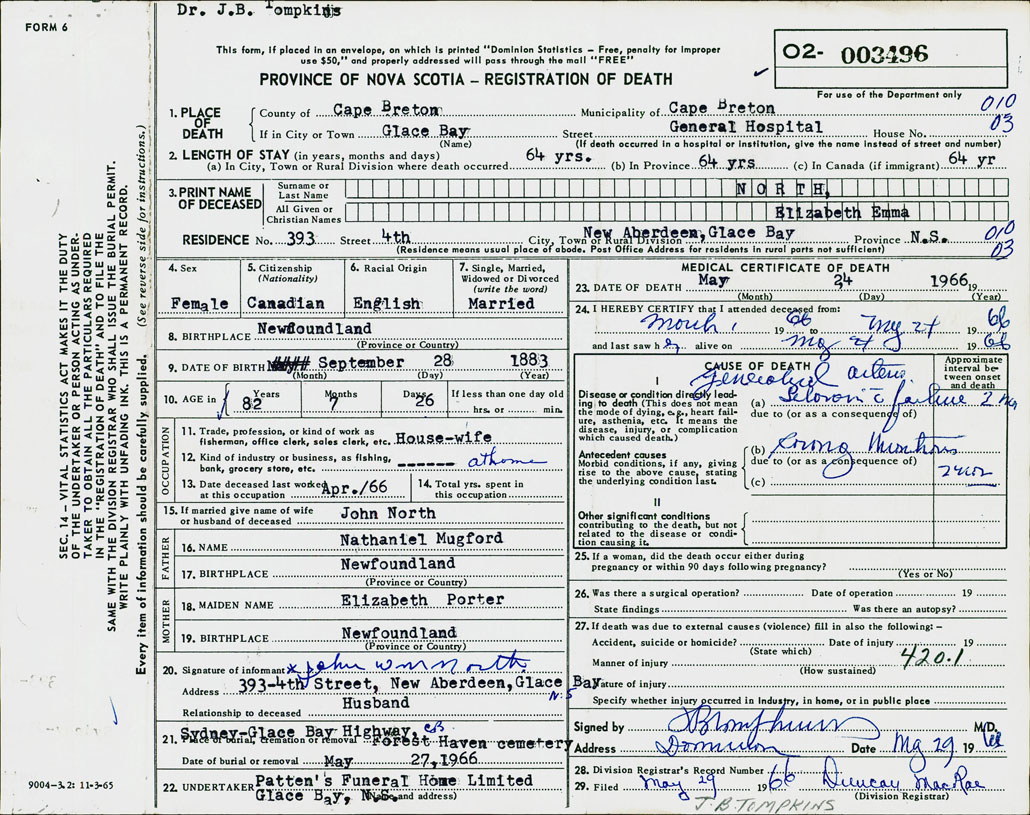 Dr. J.B. Tompkins
FORM 6
This form, if placed in an envelope, on which is printed "Dominion Statistics – Free, penalty for improper
use $50," and properly addressed will pass through the mail "FREE"
PROVINCE OF NOVA SCOTIA – REGISTRATION OF DEATH
O2- 003496
For use of the Department only
1. PLACE OF DEATH
County of Cape Breton Municipality of Cape Breton 010
If in City or Town Glace Bay Street General Hospital House No. 03
(Name) (If death occurred in a hospital or institution, give the name instead of street and number)
2. LENGTH OF STAY (in years, months and days)
(a) In City, Town or Rural Division where death occurred 64 yrs. (b) In Province 64 yrs (c) In Canada (if immigrant) 64 yr
3. PRINT NAME OF DECEASED
Surname or Last Name NORTH,
All Given or Christian Names Elizabeth Emma
RESIDENCE No. 393 Street 4th City, Town or Rural Division New Aberdeen, Glace Bay Province N.S. 010
03
(Residence means usual place of abode. Post Office Address for residents in rural parts not sufficient)
4. Sex
Female
5. Citizenship
(Nationality)
Canadian
6. Racial Origin
English
7. Single, Married,
Widowed or Divorced
(write the word)
Married
8. BIRTHPLACE Newfoundland
(Province or Country)
9. DATE OF BIRTH September 28 1883
(Month) (Day) (Year)
10. AGE in Years 82 Months 7 Days 26 If less than one day old
hrs. or min.
OCCUPATION
11. Trade, profession, or kind of work as
fisherman, office clerk, sales clerk, etc. House-wife
12. Kind of industry or business, as fishing,
bank, grocery store, etc. ------ at home
13. Date deceased last worked
at this occupation Apr./66
14. Total yrs. spent in
this occupation
15. If married give name of wife
or husband of deceased John North
FATHER
16. NAME Nathaniel Mugford
17. BIRTHPLACE Newfoundland
(Province or Country)
MOTHER
18. MAIDEN NAME Elizabeth Porter
19. BIRTHPLACE Newfoundland
(Province or Country)
20. Signature of informant x John Wm North
Address 393-4th Street, New Aberdeen, Glace Bay
N.S
Relationship to deceased Husband
Sydney-Glace Bay Highway, CB
21. Place of burial, cremation or removal Forest Haven cemetery
Date of burial or removal May 27, 1966
22. UNDERTAKER Patten's Funeral Home Limited
Glace Bay, N.S. (Name and address)
MEDICAL CERTIFICATE OF DEATH
23. DATE OF DEATH May 24 1966 19
(Month) (Day) (Year)
24. I HEREBY CERTIFY that I attended deceased from:
March 1 1966 to May 24 1966
and last saw her alive on May 24 1966
CAUSE OF DEATH
Approximate interval between onset and death
I
Disease or condition directly leading to death (This does not mean
the mode of dying, e.g., heart failure, asthenia, etc. It means the
disease, injury, or complication
which caused death.)
(a) failure
due to (or as a consequence of)
Antecedent causes
Morbid conditions, if any, giving
rise to the above cause, stating
the underlying condition last.
(b)
due to (or as a consequence of
(c)
II
Other significant conditions
contributing to the death, but not
related to the disease or condition causing it.
25. If a woman, did the death occur either during
pregnancy or within 90 days following pregnancy?
(Yes or No)
26. Was there a surgical operation? Date of operation 19
State findings Was there an autopsy?
27. If death was due to external causes (violence) fill in also the following: –
Accident, suicide or homicide? Date of injury 19
(State which)
Manner of injury 420.1
(How sustained)
Nature of injury
Specify whether injury occurred in Industry, in home, or in public place
Signed by M/D.
Address Dominion Date May 29 1966
28. Division Registrar's Record Number
29. Filed May 29 1966 Duncan MacRae
(Division Registrar)
J.B. TOMPKINS
SEC. 14 – VITAL STATISTICS ACT MAKES IT THE DUTY
OF THE UNDERTAKER OR PERSON ACTING AS UNDERTAKER TO OBTAIN ALL THE PARTICULARS REQUIRED
IN THE "REGISTRATION OF DEATH" AND TO FILE THE
SAME WITH THE DIVISION REGISTRAR WHO SHALL ISSUE THE BURIAL PERMIT.
WRITE PLAINLY WITH UNFADING INK. THIS IS A PERMANENT RECORD.
Every item of information should be carefully supplied. (See reverse side for instructions.)
9004-3.2: 11-3-65